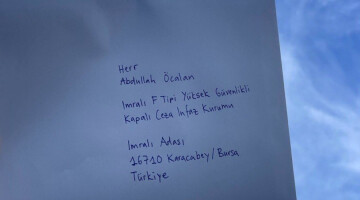 Herr
Abdullah Öcalan
Imralı F Tipi Yüksek Güvenlikli
Kapalı Ceza İnfaz Kurumu
Imralı Adası
16710 Karacabey/Bursa
Türkiye